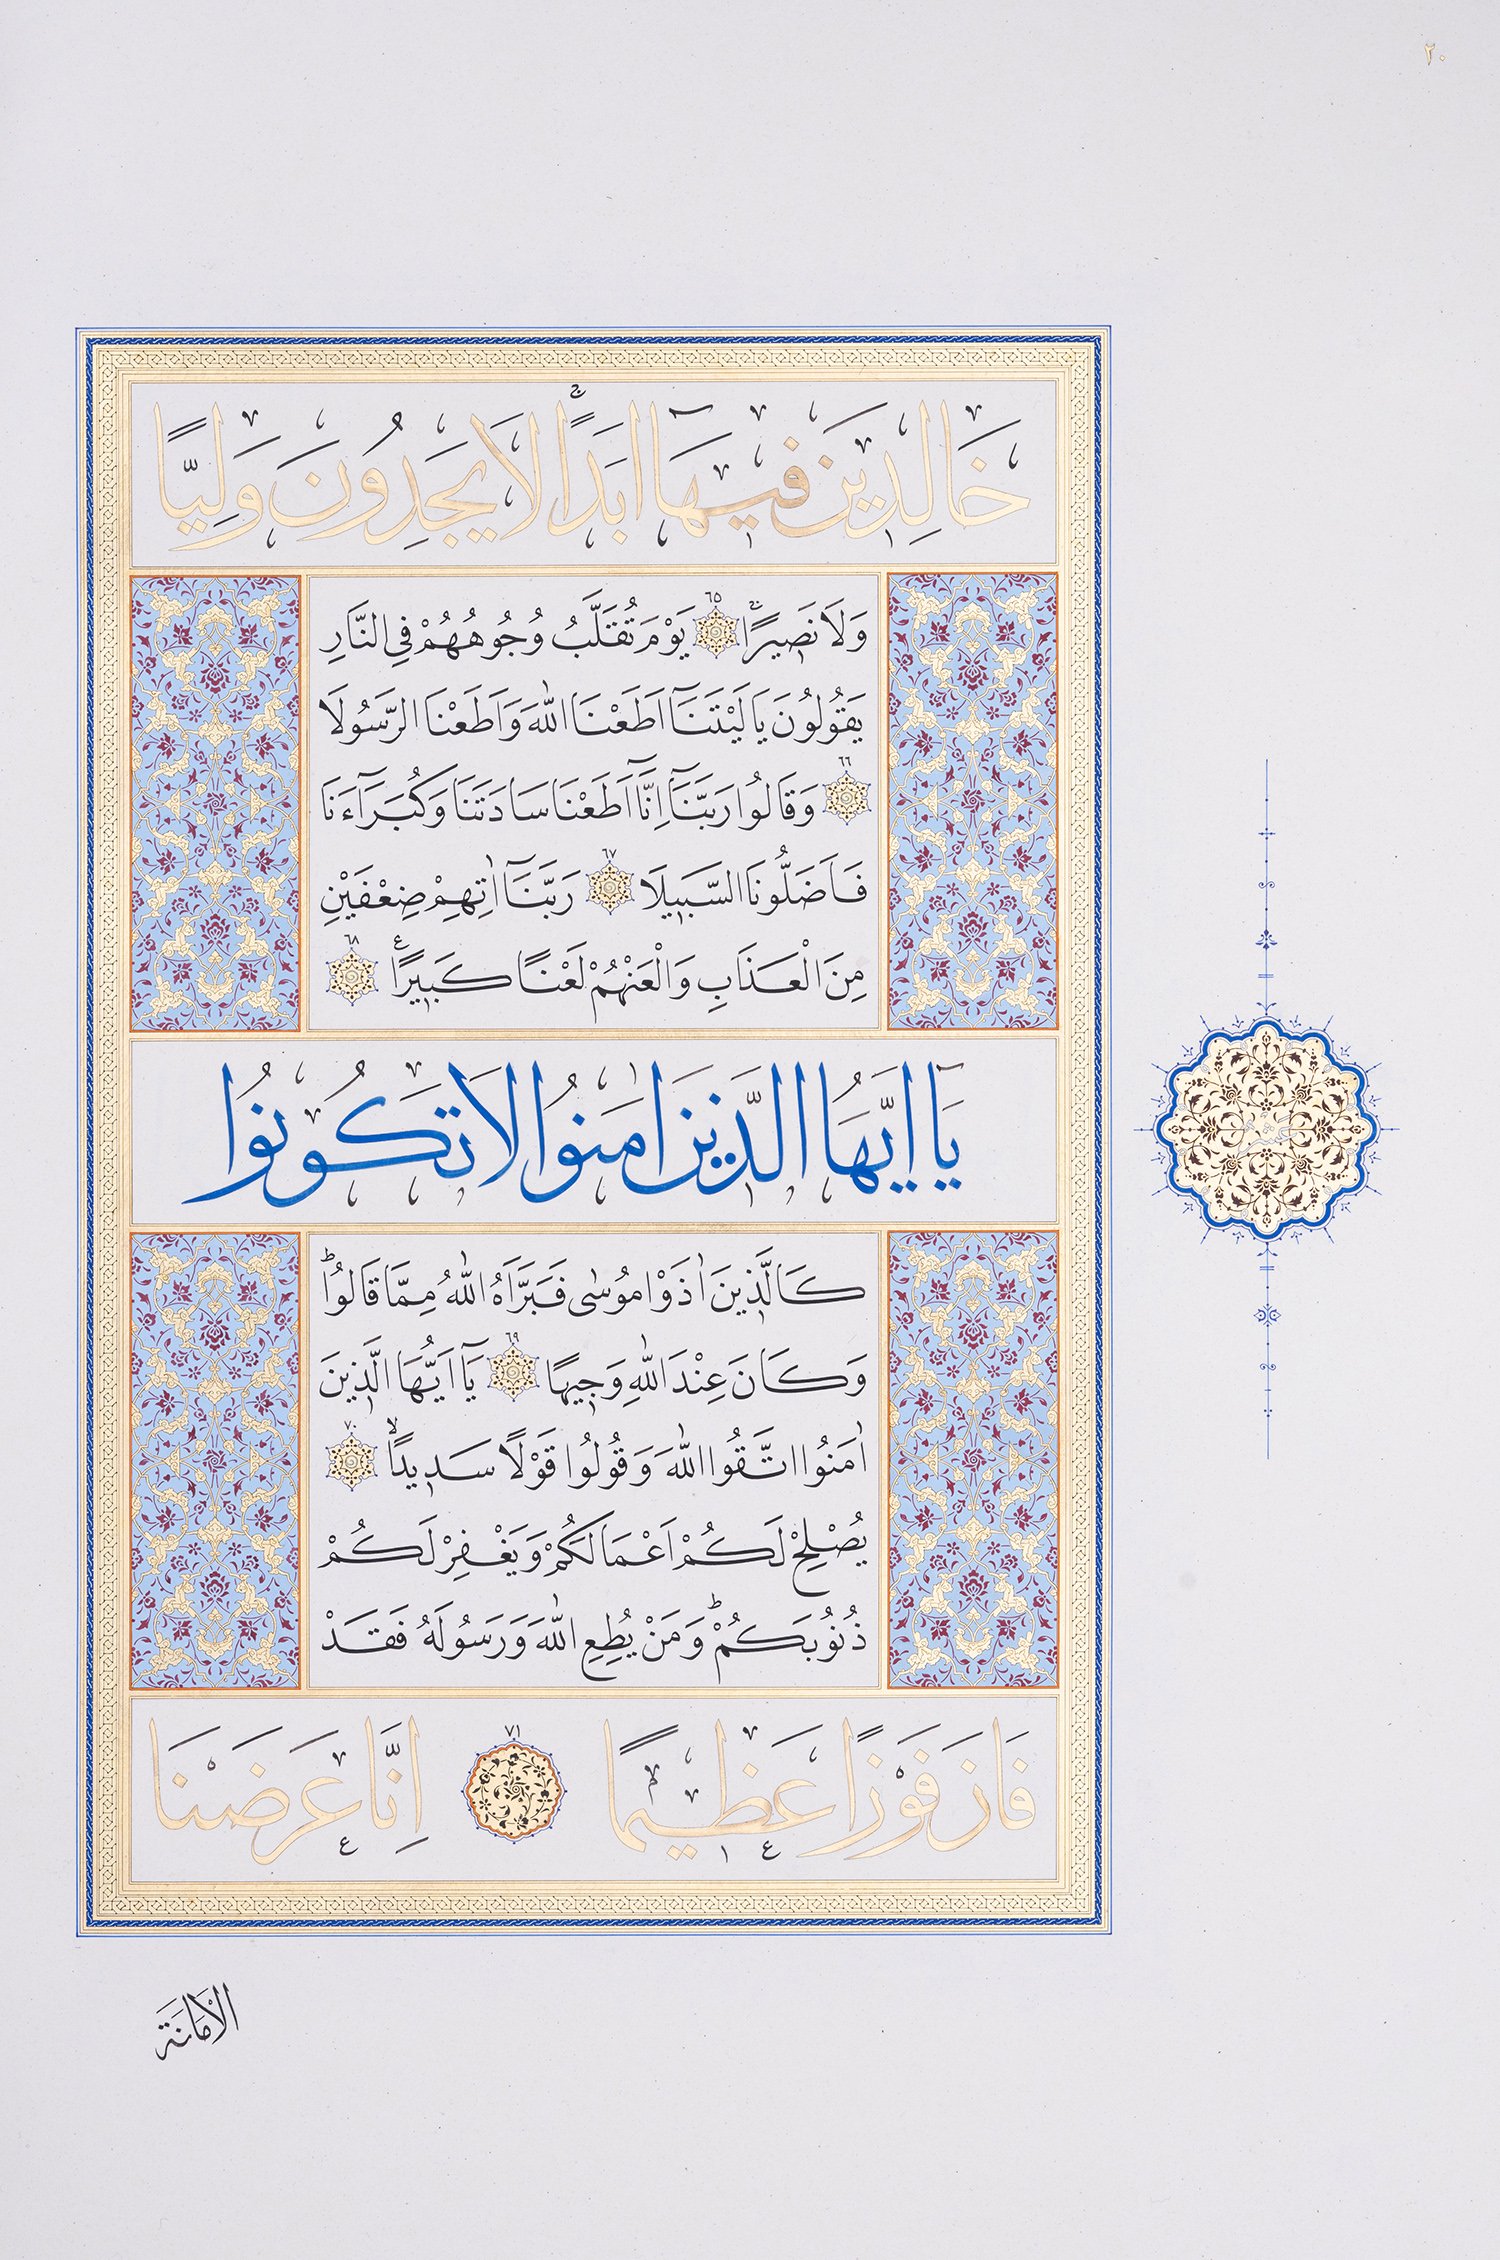 ٢٠
خَالِدِينَ فِيهَٓا اَبَدًاۚ لَا يَجِدُونَ وَلِيًّا
وَلَا نَصِيرًاۚ ٦٥ يَوْمَ تُقَلَّبُ وُجُوهُهُمْ فِي النَّارِ
يَقُولُونَ يَا لَيْتَنَٓا اَطَعْنَا اللّٰهَ وَاَطَعْنَا الرَّسُولَا
٦٦ وَقَالُوا رَبَّنَٓا اِنَّٓا اَطَعْنَا سَادَتَنَا وَكُبَرَٓاءَنَا
فَاَضَلُّونَا السَّبِيلَا ٦٧ رَبَّنَٓا اٰتِهِمْ ضِعْفَيْنِ
مِنَ الْعَذَابِ وَالْعَنْهُمْ لَعْنًا كَبِيرًاع ٦٨
يَٓا اَيُّهَا الَّذِينَ اٰمَنُوا لَا تَكُونُوا
كَالَّذِينَ اٰذَوْا مُوسٰى فَبَرَّاَهُ اللّٰهُ مِمَّا قَالُواۜ
وَكَانَ عِنْدَ اللّٰهِ وَجِيهًا ٦٩ يَٓا اَيُّهَا الَّذِينَ
اٰمَنُوا اتَّقُوا اللّٰهَ وَقُولُوا قَوْلًا سَدِيدًاۙ ٧٠
يُصْلِحْ لَكُمْ اَعْمَالَكُمْ وَيَغْفِرْ لَكُمْ
ذُنُوبَكُمْۜ وَمَنْ يُطِعِ اللّٰهَ وَرَسُولَهُ فَقَدْ
فَازَ فَوْزًا عَظِيمًا ٧١ اِنَّا عَرَضْنَا
الْاَمَانَةَ